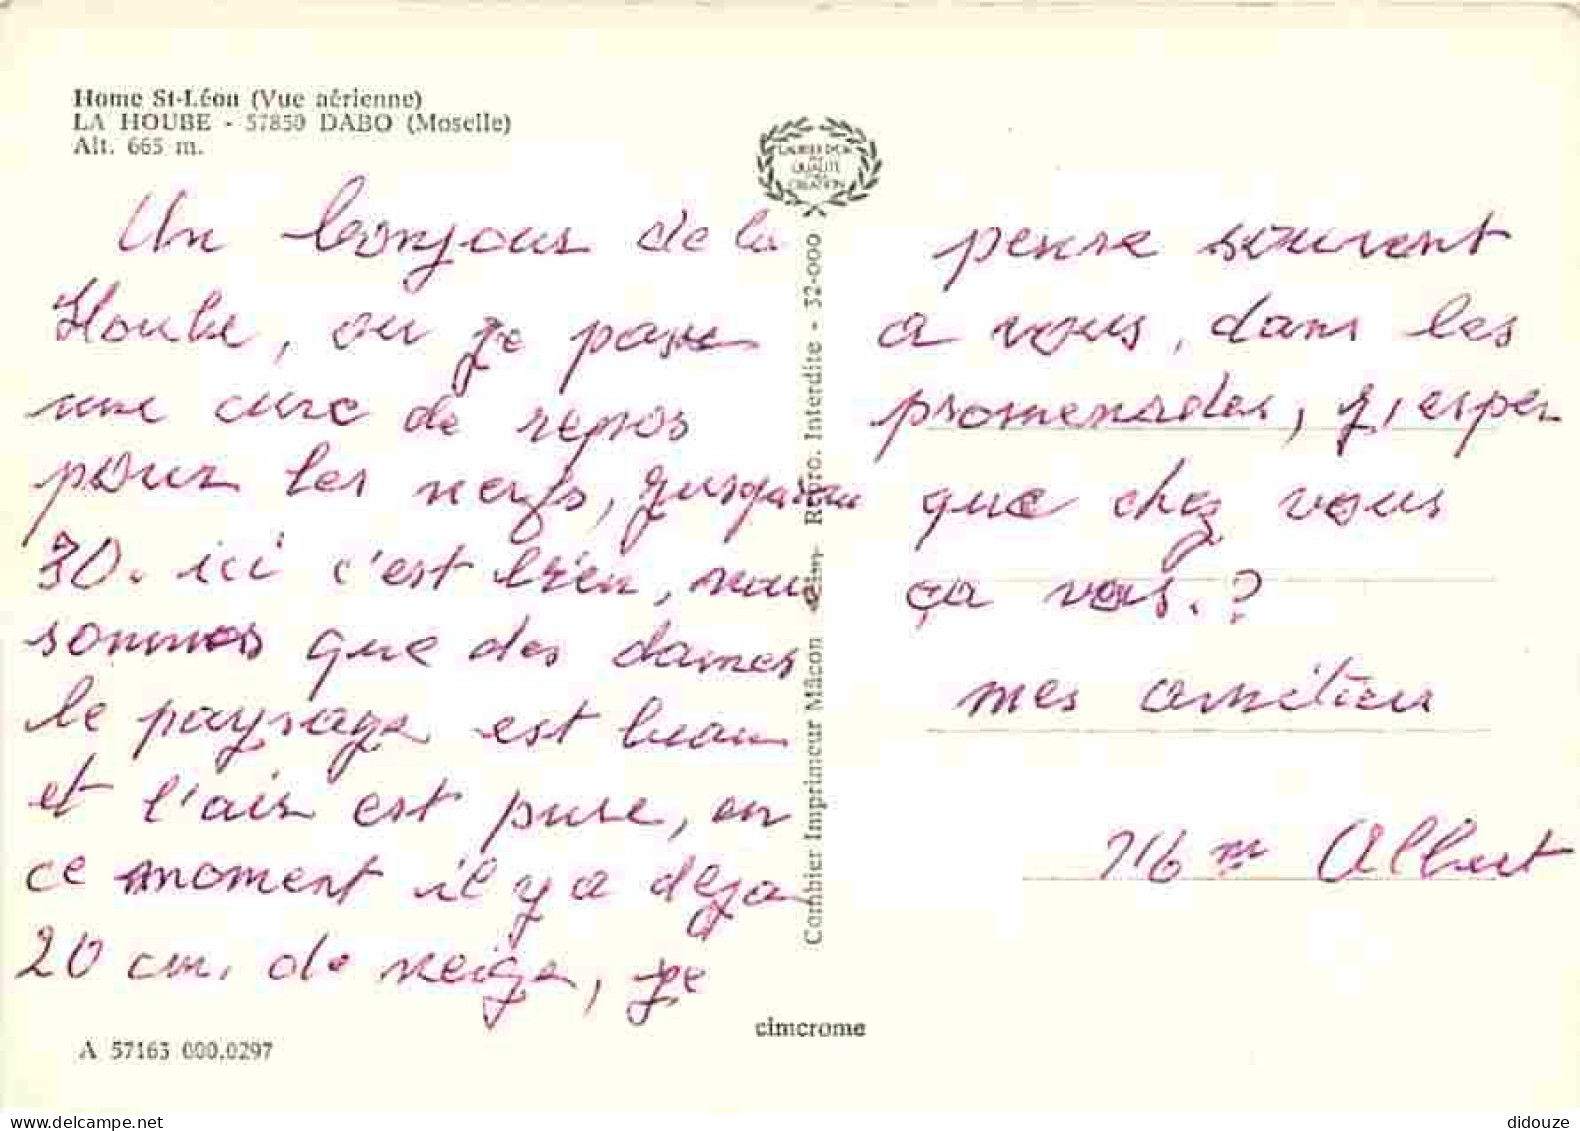 Home St-Léon (Vue aérienne)
LA HOUBE - 57850 DABO (Moselle)
Alt. 665 m.
LAURIER D'OR
DE
QUALITÉ
CRÉATION
Un bonjour de la
Hoube, ou je passe
une cure de repos
pour les nerfs, jusqu'au
30. ici c'est bien, nous
sommes que des dames
le paysage est beau
et l'air est pure, en
ce moment il y a deja
20 cm. de neige, je
pense souvent
a vous, dans les
promenades, j'esper
que chez vous
ça vas.?
mes amitiers
Mm Albert
Combier Imprimeur Mâcon Repro. Interdite - 32-000
cimcrome
A 57163 000.0297
didouze